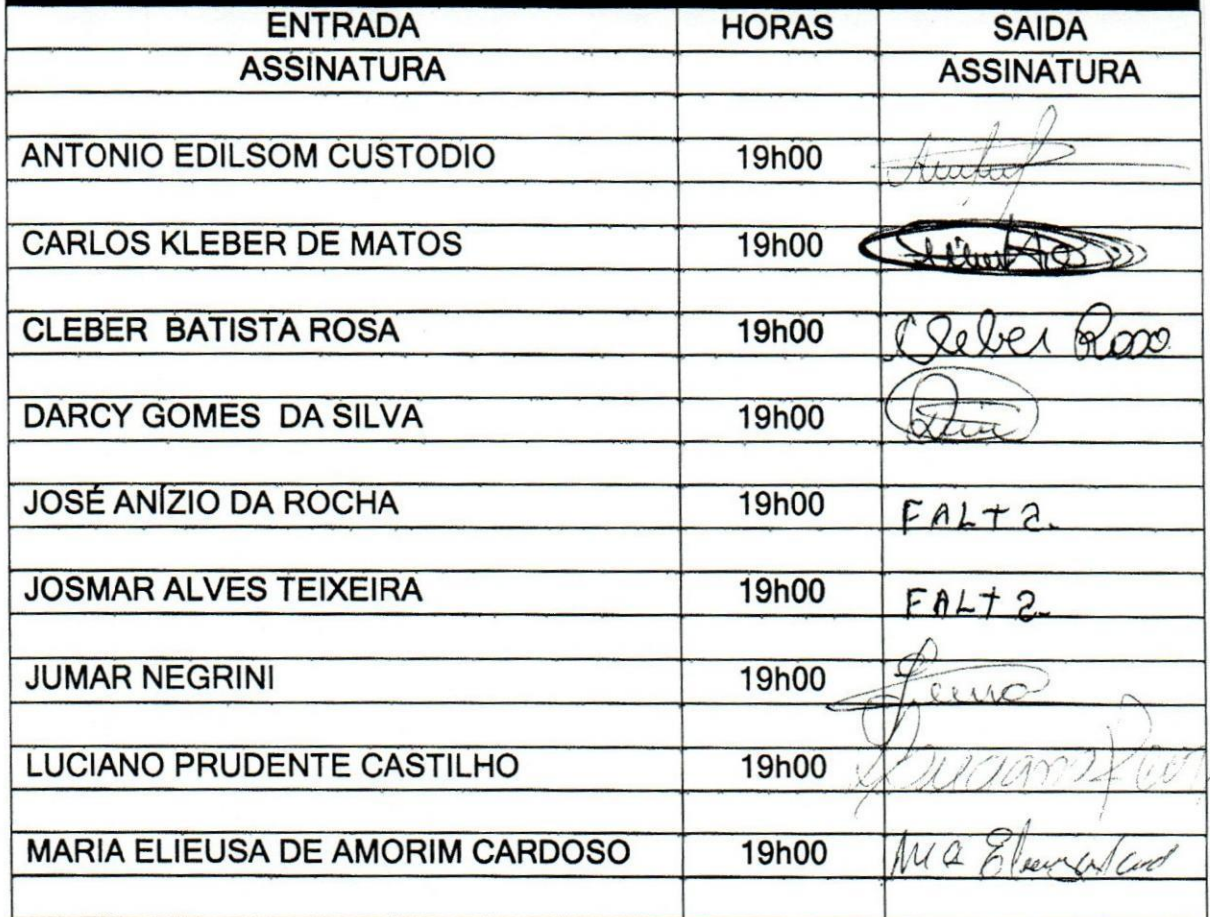 ENTRADA HORAS SAIDA
ASSINATURA ASSINATURA
ANTONIO EDILSOM CUSTODIO 19h00
CARLOS KLEBER DE MATOS 19h00
CLEBER BATISTA ROSA 19h00 Cleber Rosa
DARCY GOMES DA SILVA 19h00
JOSÉ ANÍZIO DA ROCHA 19h00 FALTA.
JOSMAR ALVES TEIXEIRA 19h00 FALTA.
JUMAR NEGRINI 19h00
LUCIANO PRUDENTE CASTILHO 19h00
MARIA ELIEUSA DE AMORIM CARDOSO 19h00